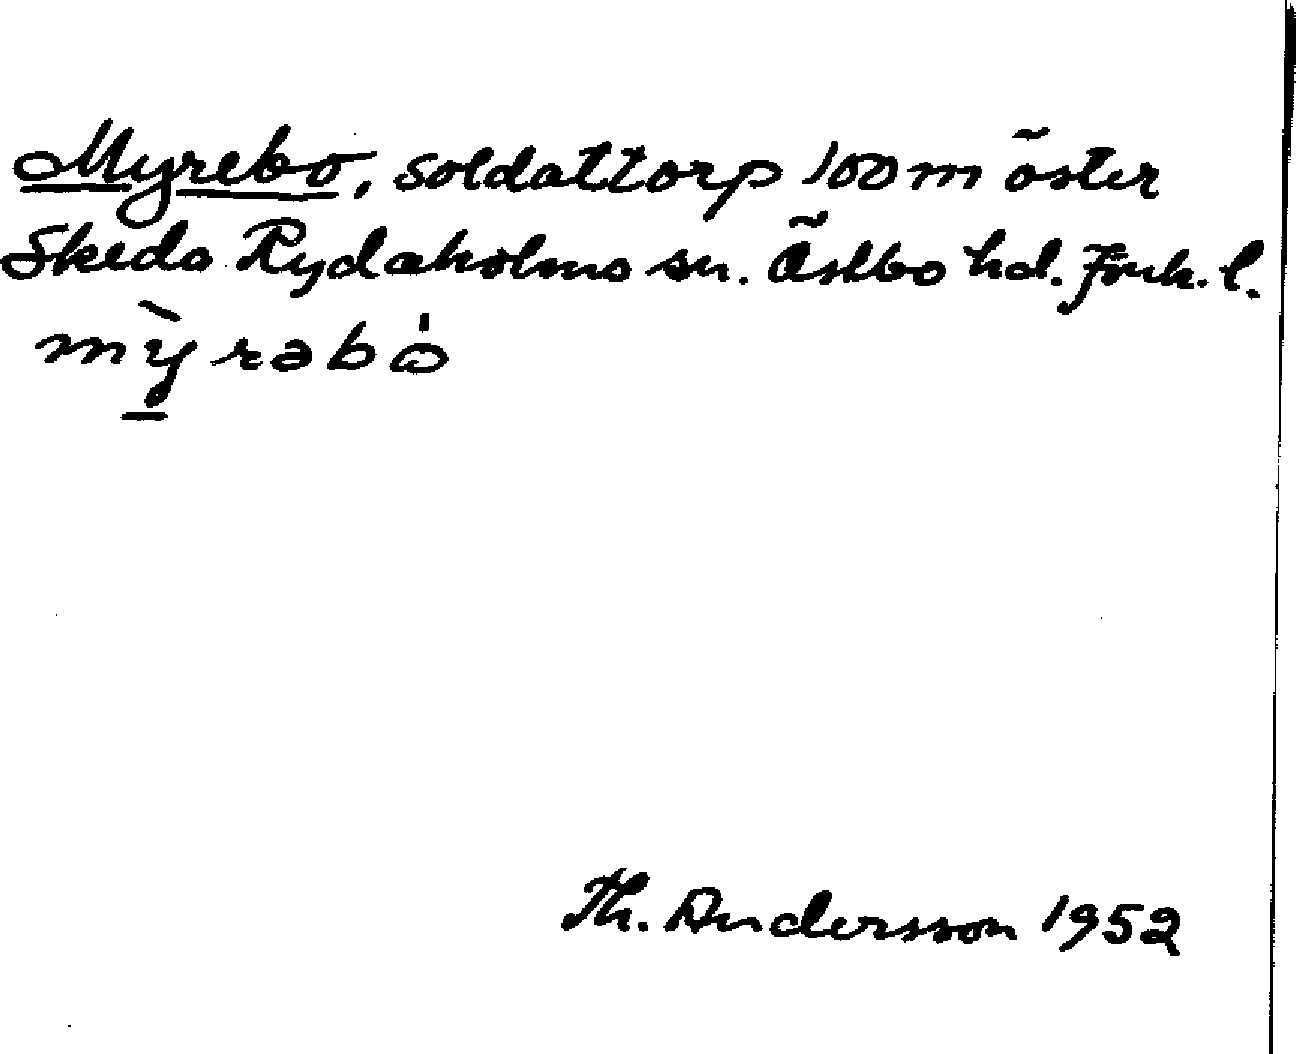 Myrebo, soldattorp 100 m öster
Skeda Rydaholms sn. Östbo hd. Jönk. l.
mỳ̱rəbó
Th. Andersson 1952